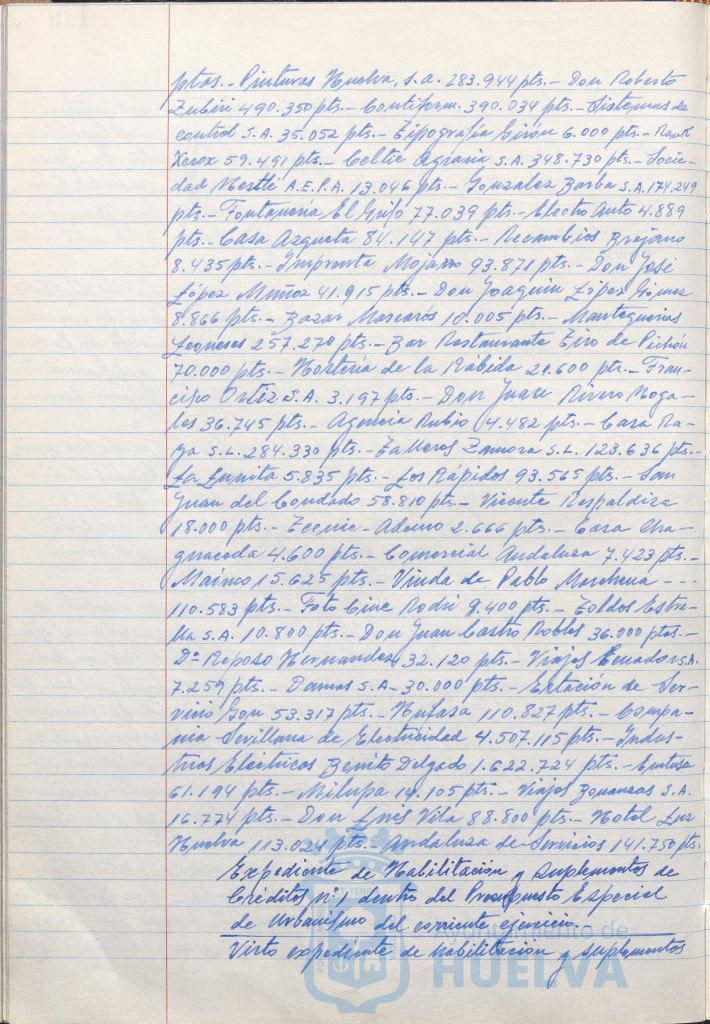 ptas.- Pinturas Huelva, s.a. 283.944 pts.- Don Roberto
Zubiri 490.350 pts.- Contiform. 390.034 pts.- Sistemas de
control S.A. 35.052 pts.- Tipografía Girón 6.000 pts.- Rank
Xerox 59.491 pts.- Celtic Agraria S.A. 348.730 pts.- Socie-
dad Nestlé A.E.P.A. 13.046 pts.- Gonzalez Barba S.A. 174.249
pts.- Fontanería El Grifo 77.039 pts.- Electro Auto 4.889
pts.- Casa Azqueta 84.147 pts.- Recambios Bejarano
8.435 pts.- Imprenta Mojarro 93.871 pts.- Don José
López Muñoz 41.915 pts.- Don Joaquin López Gómez
8.866 pts.- Bazar Mascarós 10.005 pts.- Mantequerias
Leonesas 257.270 pts.- Bar Restaurante Tiro de Pichón
70.000 pts.- Hostería de la Rábida 21.600 pts.- Fran-
cisco Ortiz S.A. 3.197 pts.- Don Juan Rivero Noga-
les 36.745 pts.- Agencia Rubio 4.482 pts.- Casa Ra-
ya S.L. 284.330 pts.- Talleres Zamora S.L. 123.636 pts.-
La Lunita 5.835 pts.- Los Rápidos 93.565 pts.- San
Juan del Condado 58.810 pts.- Vicente Respaldiza
18.000 pts.- 2.666 pts.- Casa
4.600 pts.- Comercial Andaluza 7.423 pts.-
15.625 pts.- Viuda de Pablo Marchena ---
110.583 pts.- Foto Cine Rodri 9.400 pts.- Toldos Estre-
lla S.A. 10.800 pts.- Don Juan Castro Robles 36.000 ptas.-
Dª Reposo Hernandez 32.120 pts.- Viajes Ecuador S.A.
7.259 pts.- Damas S.A.- 30.000 pts.- Estación de Ser-
vicio 53.317 pts.- Hufasa 110.827 pts.- Compa-
ñia Sevillana de Electricidad 4.507.115 pts.- Indus-
trias Eléctricas Benito Delgado 1.622.724 pts.- Emtusa
61.194 pts.- Milupa 14.105 pts.- Viajes Bonanzas S.A.
16.774 pts.- Don Luis Vila 88.800 pts.- Hotel Luz
Huelva 113.024 pts.- Andaluza de Servicios 141.750 pts.
Expediente de Habilitación y suplementos de
Créditos nº 1 dentro del Presupuesto Especial
de Urbanismo del corriente ejercicio.
Visto expediente de habilitación y suplementos
Ayuntamiento de
HUELVA